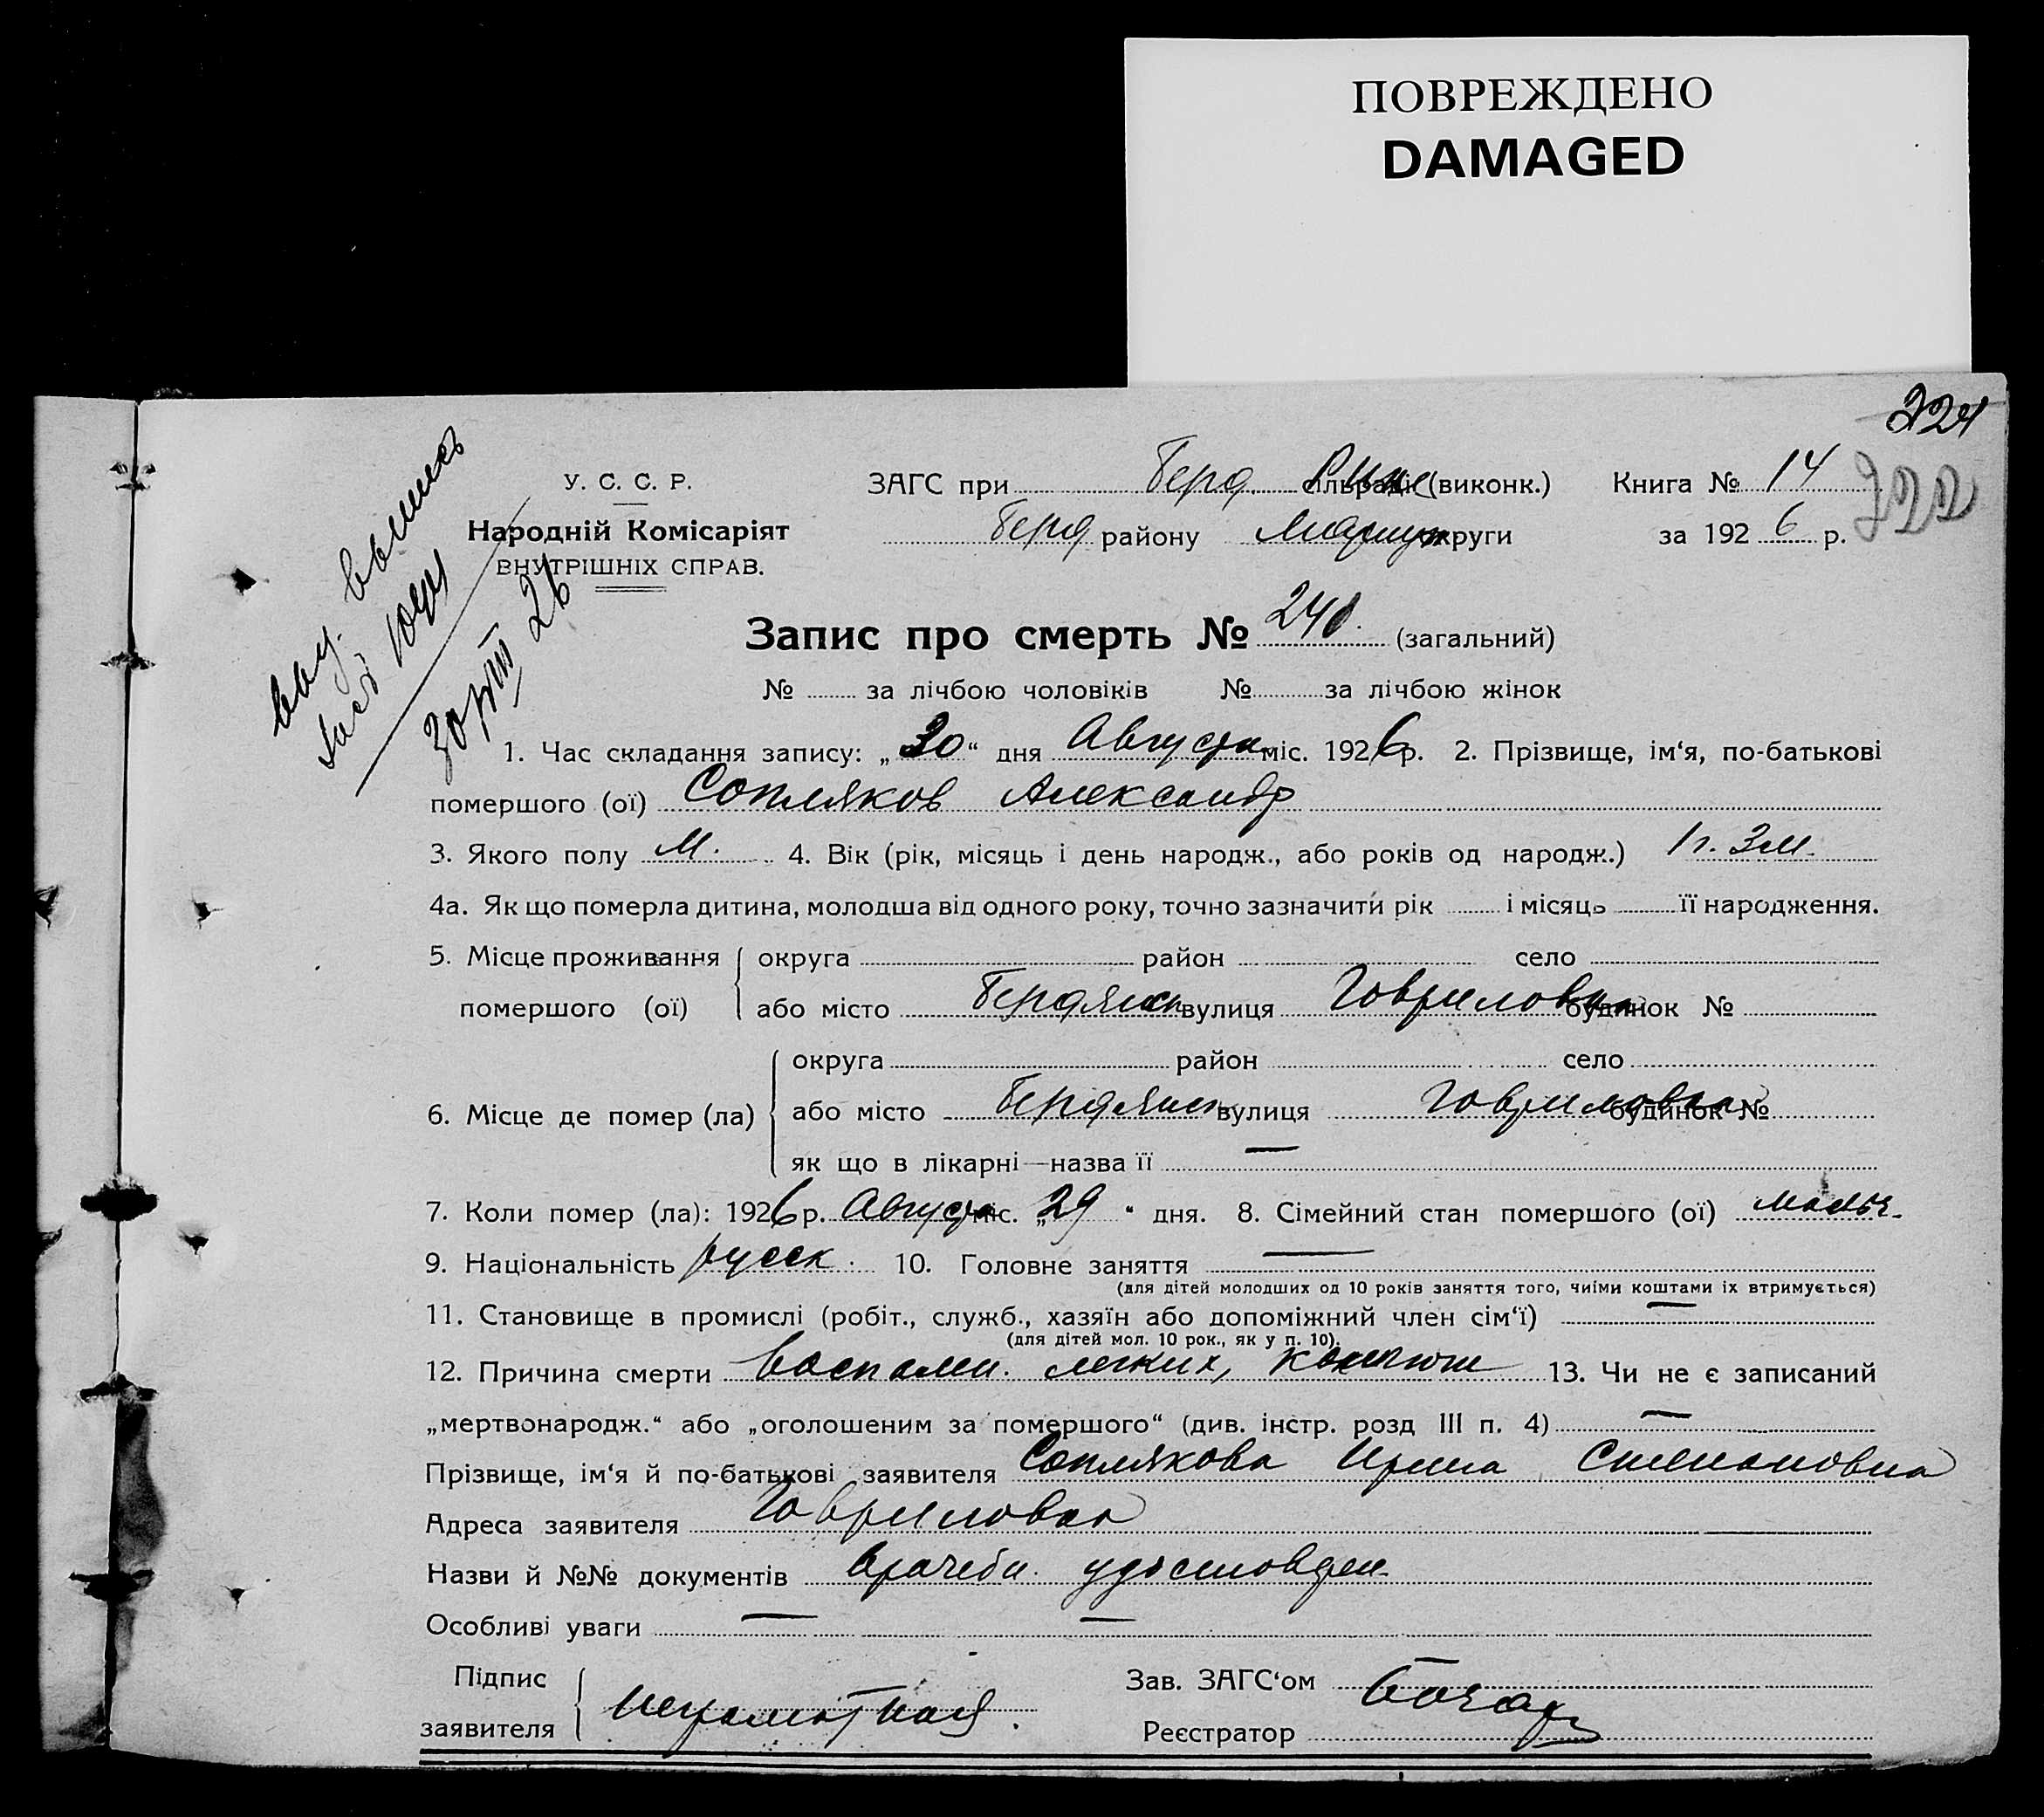 ПОВРЕЖДЕНО
DAMAGED
224
222
У. С. С. Р.
Народній Комісаріят
ВНУТРІШНІХ СПРАВ.
ЗАГС при Берд. Рик сільраді (виконк.) Книга № 14
Берд району Мариуп округи за 1926 р.
выд. выпись
26
Запис про смерть № 240. (загальний)
№ за лічбою чоловіків № за лічбою жінок
1. Час складання запису: „30“ дня Августа міс. 1926 р. 2. Прізвище, ім‘я, по-батькові
помершого (ої) Сопляков Александр
3. Якого полу М. 4. Вік (рік, місяць і день народж., або років од народж.) 1 г. 3 м.
4а. Як що померла дитина, молодша від одного року, точно зазначити рік і місяць її народження.
5. Місце проживання округа район село
помершого (ої) або місто Бердянск вулиця Говриловка будинок №
6. Місце де помер (ла) округа район село
або місто Бердянск вулиця Говриловка будинок №
як що в лікарні—назва її —
7. Коли помер (ла): 1926 р. Августа міс. „29“ дня. 8. Сімейний стан помершого (ої) мальч.
9. Національність русск. 10. Головне заняття —
(для дітей молодших од 10 років заняття того, чиїми коштами їх втримується)
11. Становище в промислі (робіт., служб., хазяїн або допоміжний член сім‘ї) —
(для дітей мол. 10 рок., як у п. 10).
12. Причина смерти воспален. легких, коклюш 13. Чи не є записаний
„мертвонародж.“ або „оголошеним за помершого“ (див. інстр. розд III п. 4) —
Прізвище, ім‘я й по-батькові заявителя Соплякова Ирина
Адреса заявителя Говриловка
Назви й №№ документів врачебн. удостоверен.
Особливі уваги — —
Підпис
заявителя неграмотная.
Зав. ЗАГС‘ом
Реєстратор